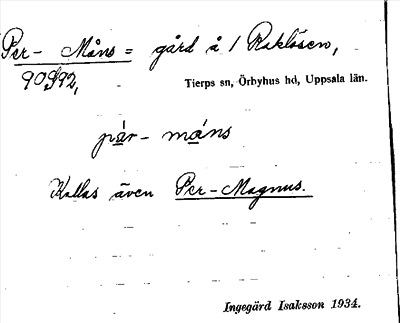 Per- Måns = gård å 1 Raklösen,
90592,
Tierps sn, Örbyhus hd, Uppsala län.
pär- måns
Kallas även Per-Magnus.
Ingegärd Isaksson 1934.